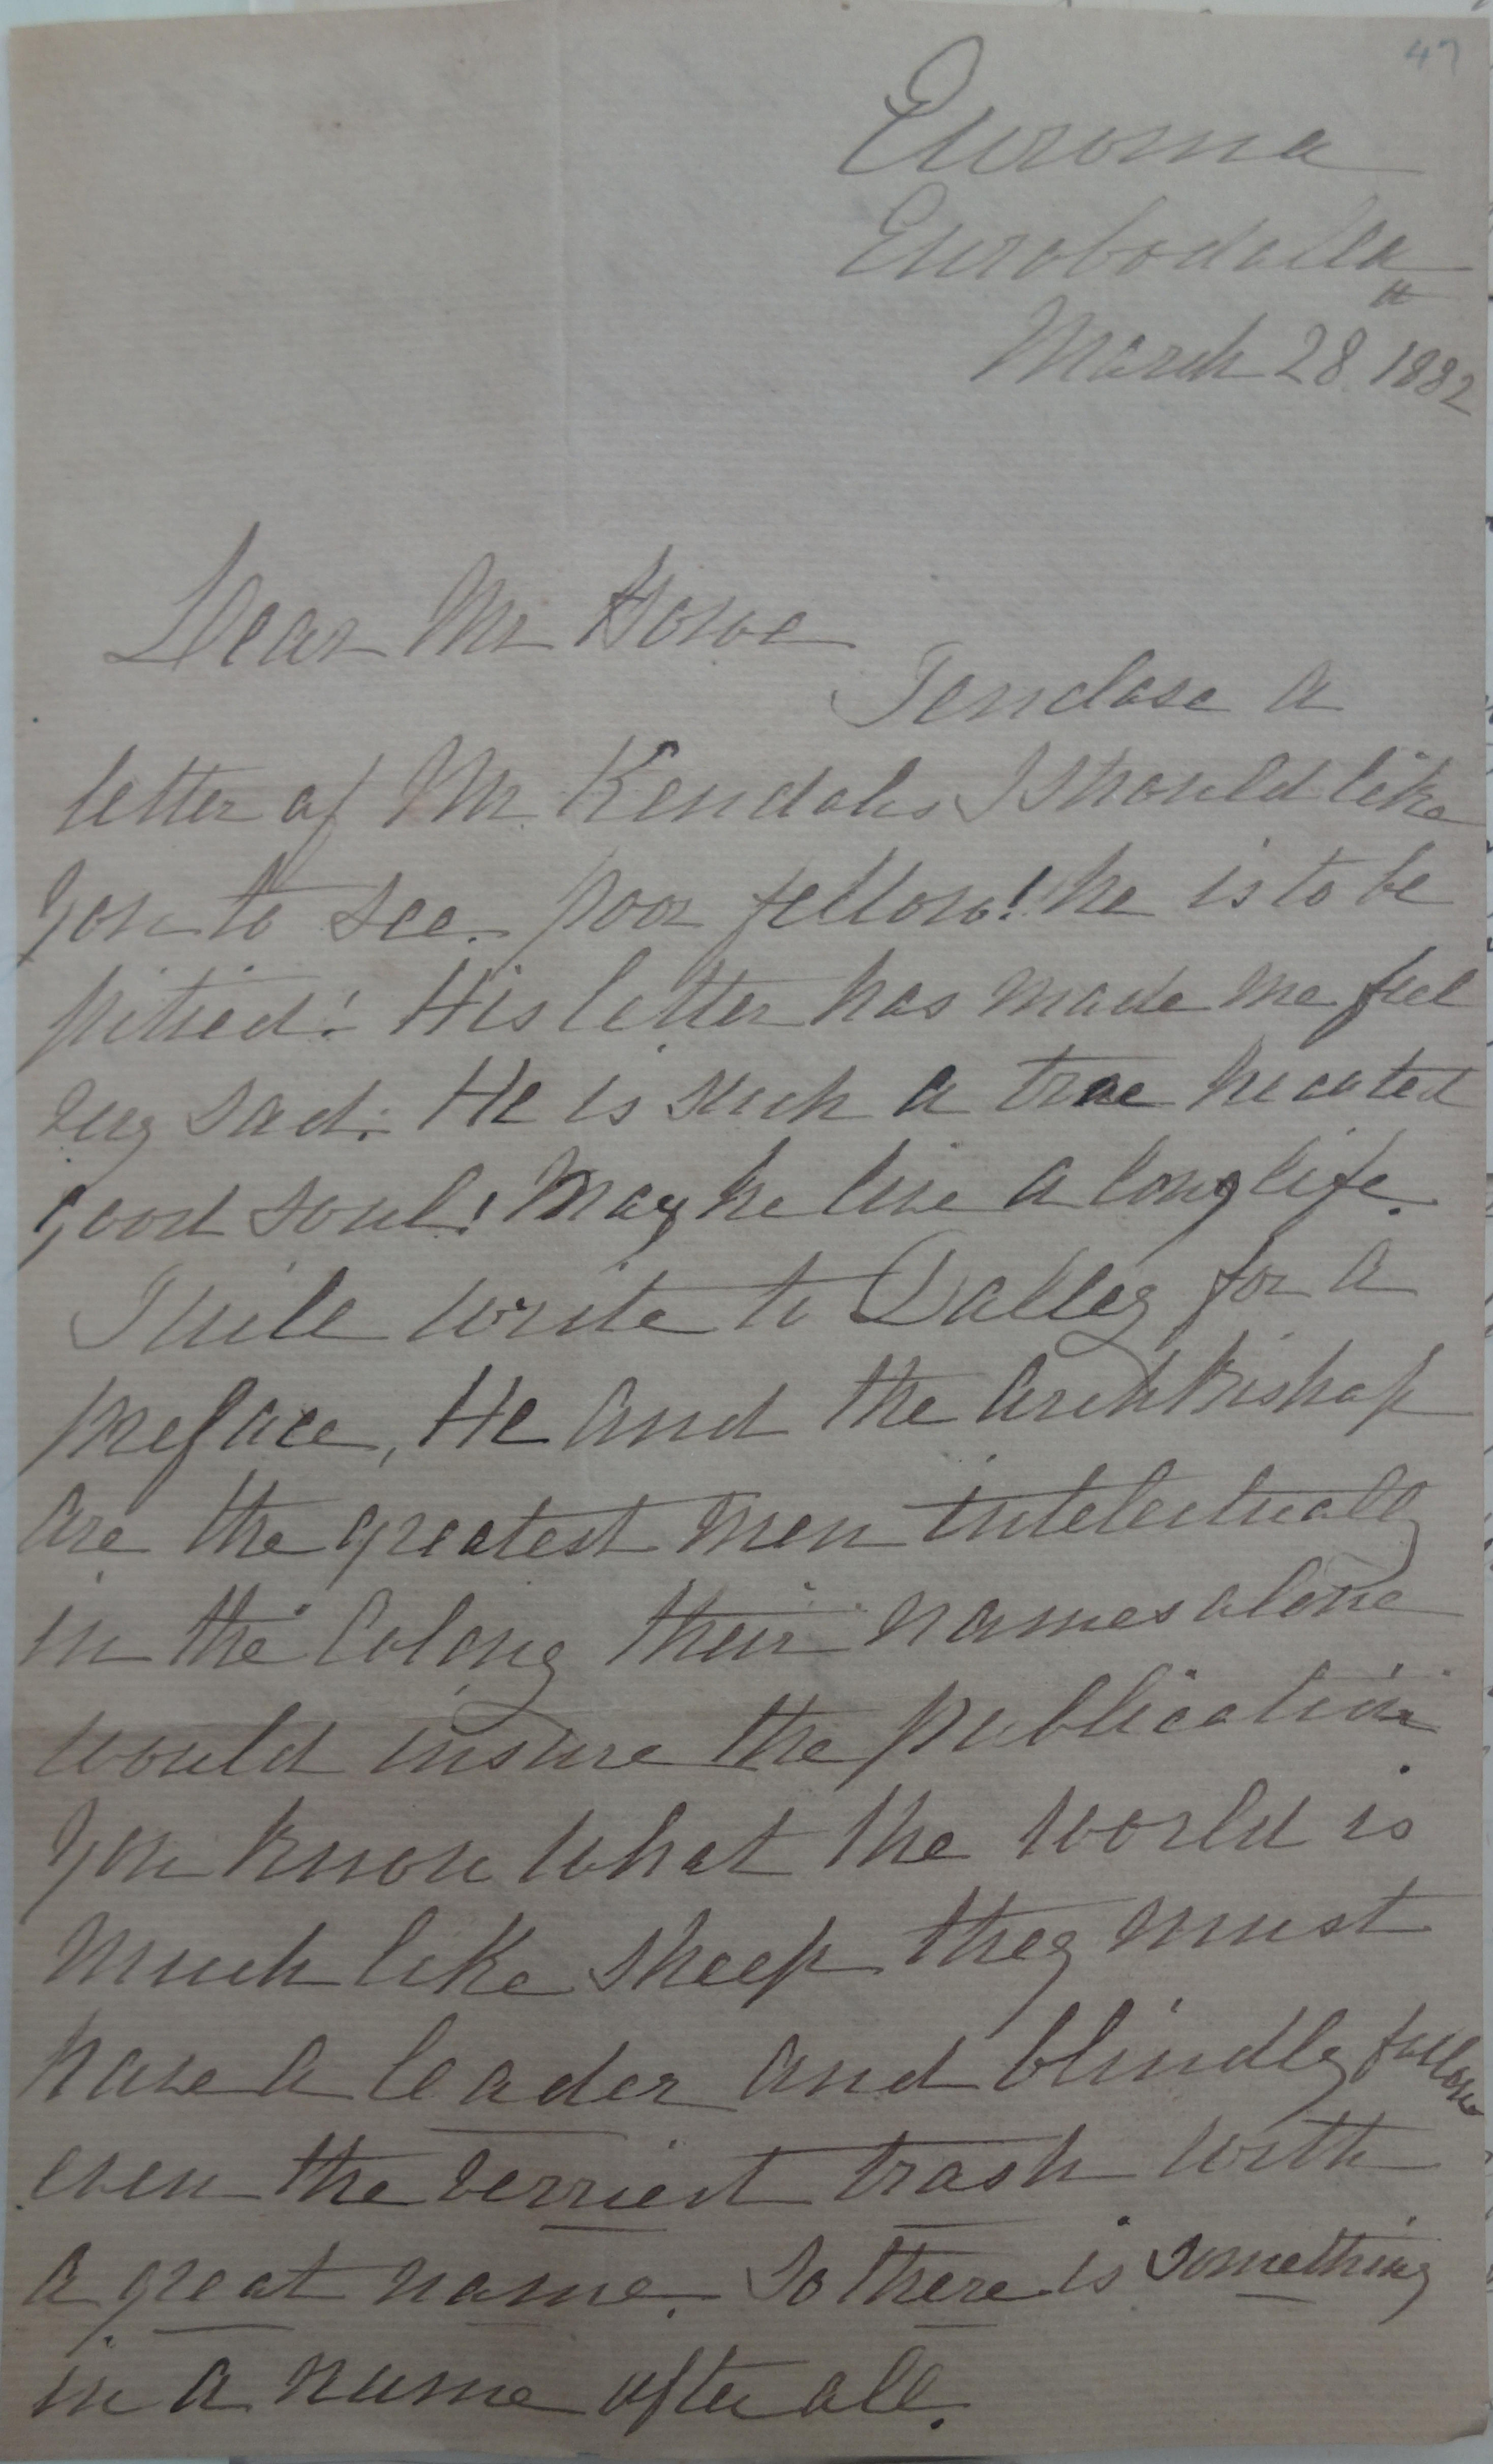 47
Euroma
Eurobodalla
March 28th 1882
Dear Mr Howe
I enclose a
letter of Mr. Kendalls I should like
you to see. poor fellow! he is to be
pitied! His letter has made me feel
very sad. He is such a true hearted
good soul! May he live a long life.
I will write to Dalley for a
preface, He and the Archbishop
are the greatest men intelectually
in the Colony their names alone
would insure the publication.
You know what the world is
much like sheep they must
have a leader and blindly follow
even the verriest trash with
a great name. So there is something
in a name after all.